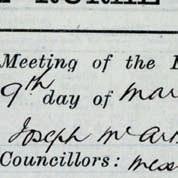 Meeting of the
9th day of Mar
Joseph Mc
Councillors: Mess